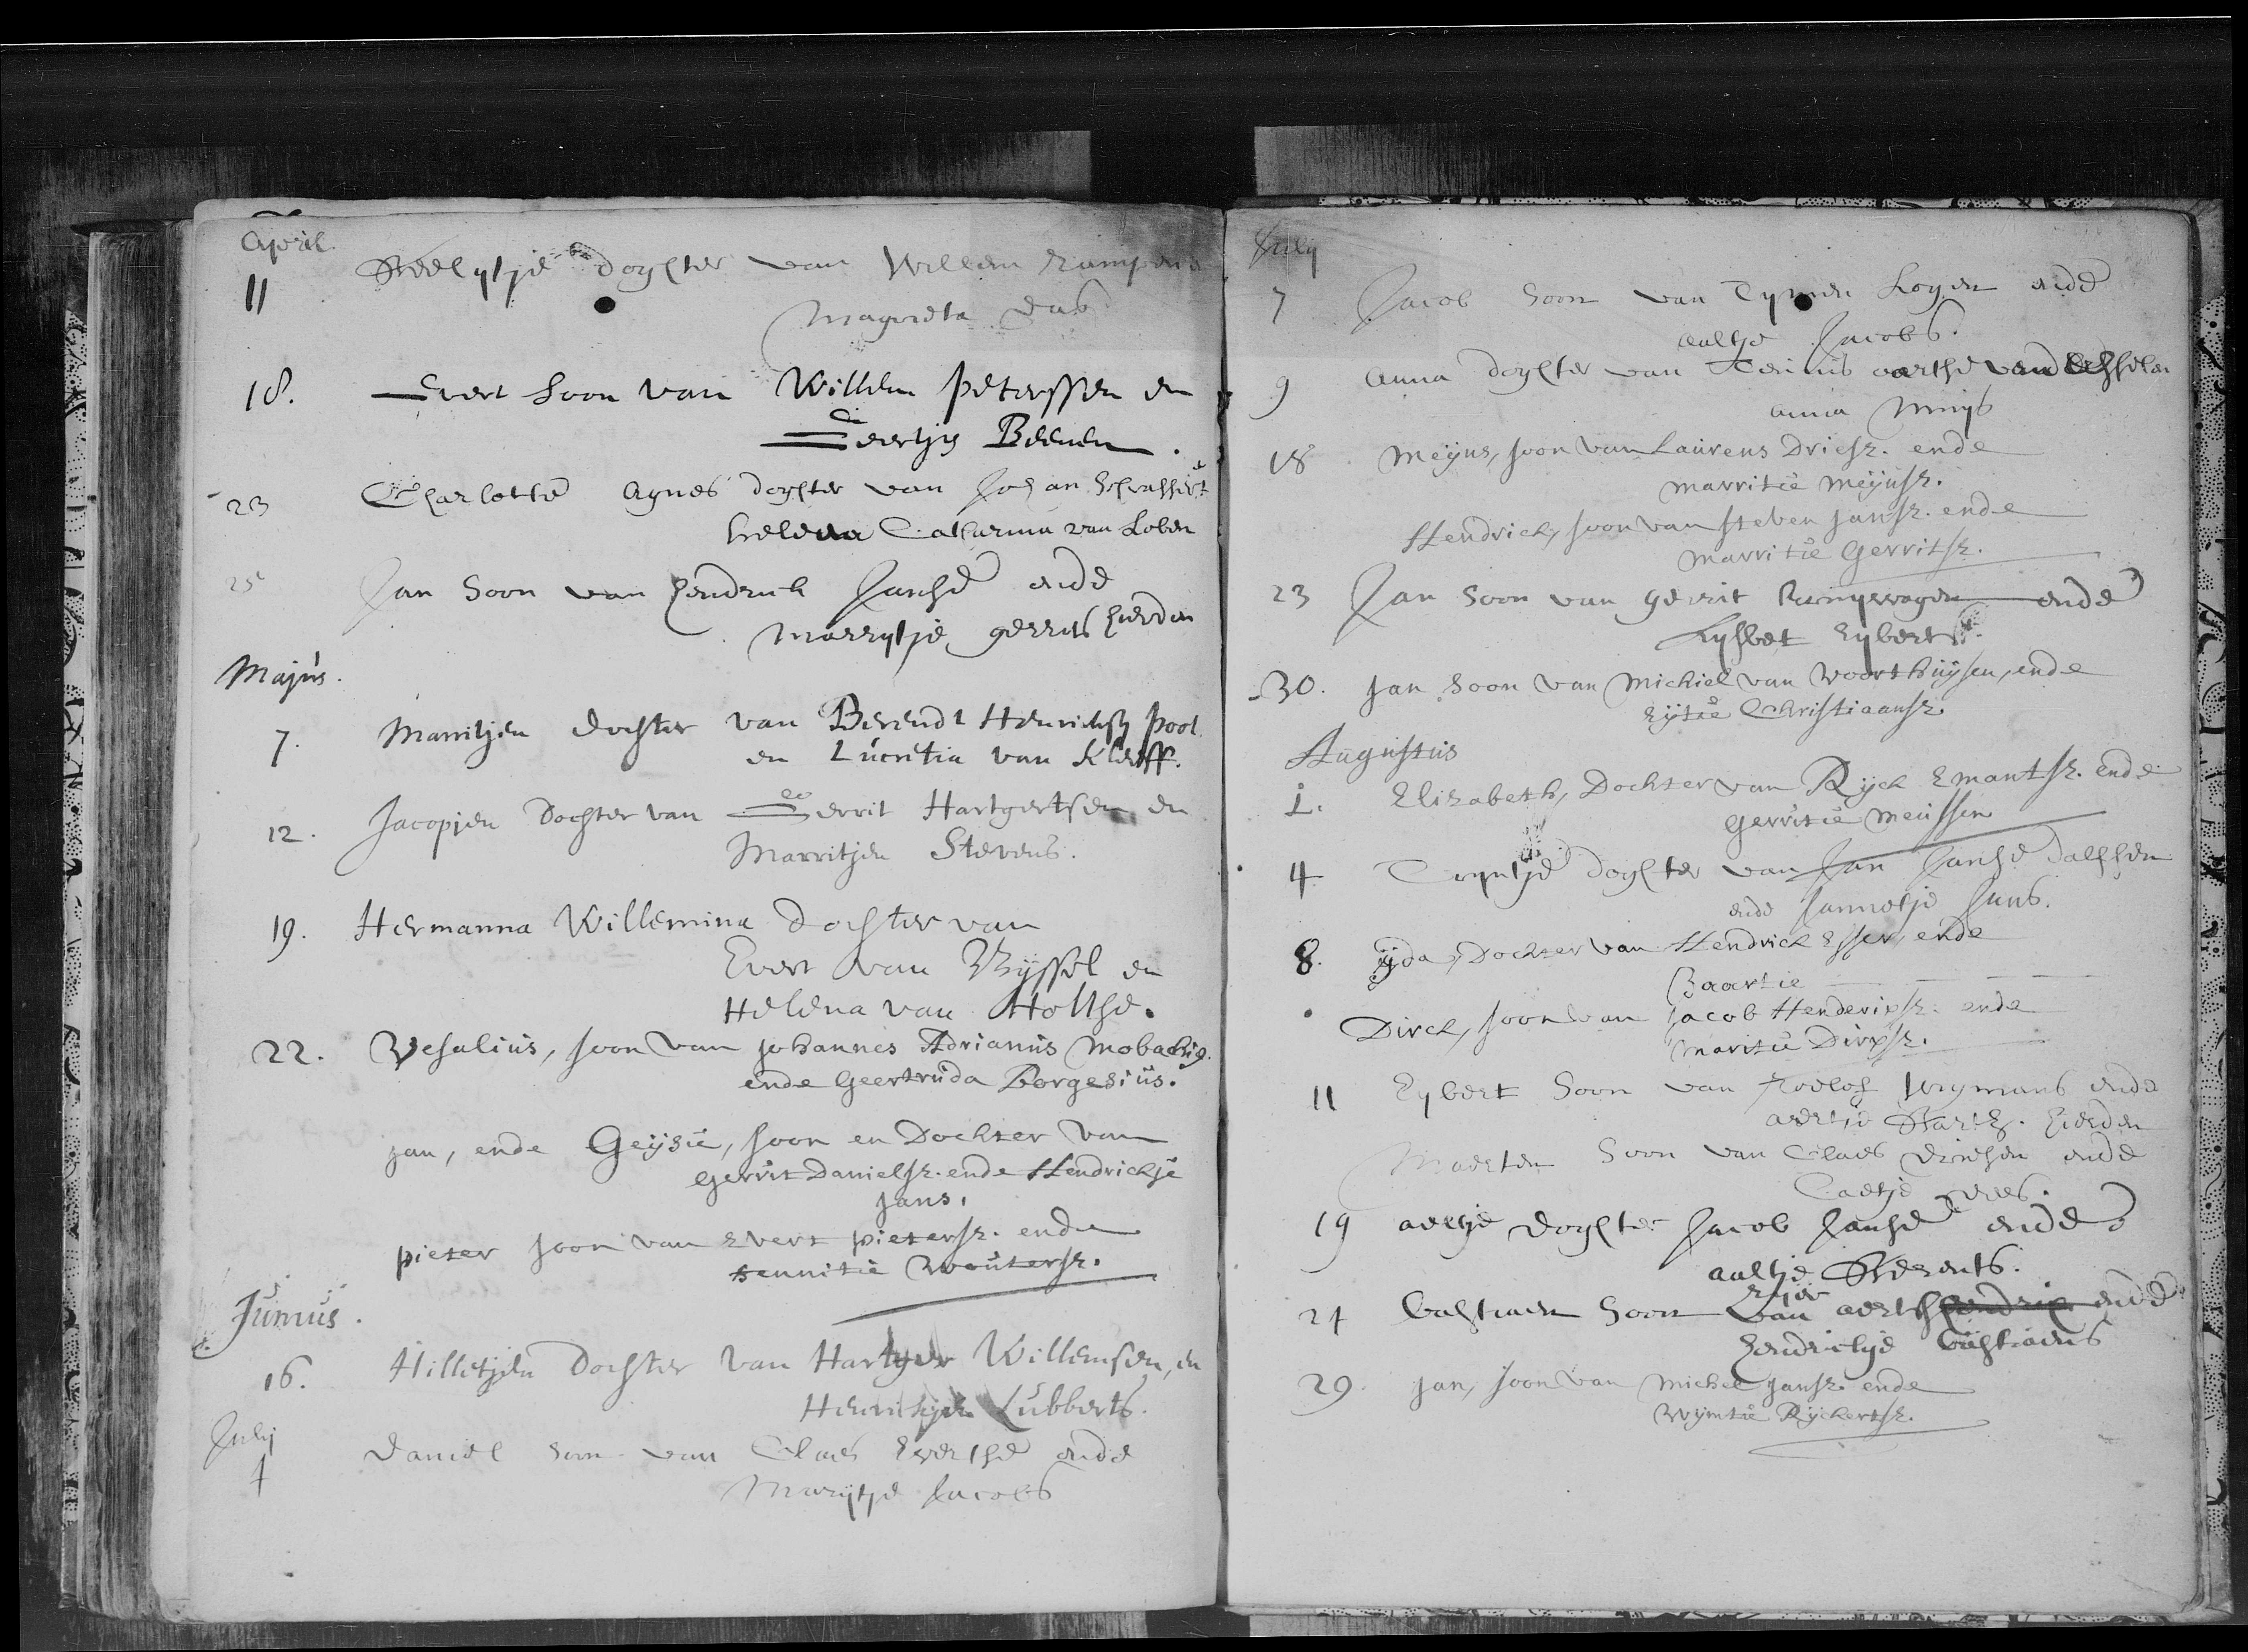 April
11 doghter van Willem
Magreta
18. Evert Soon van Willem Peterssen en
Geertys Beenen.
23 Charlotte Agnes doghter van Johan
helena Catharina van Loben
25 Jan Soon van hendrick Janse ende
Marrytje gerrits hierden
Majus.
7. Marritjen dochter van Berendt Henricksz pool
en Lucretia van
12. Jacopjen Dochter van Gerrit Hartgertsen en
Marritjen Stevens.
19. Hermanna Willemina Dochter van
Evert van Wyssel en
Helena van Holthe.
22. Vesalius, soon van Johannes Adrianus Mobachig.
ende Geertruda Borgesius.
jan, ende Geysie, soon en Dochter van
gerrit Danielsz. ende Hendrickje
jans.
pieter soon van Evert pietersz. ende
Woutersz.
Junius.
16. Hilletjen Dochter van Hartger Willemsen, en
Lubberts.
July
4 Daniel soon van Claes Evertse ende
Marytje Jacobs
July
7 Jacob Soon van Tymen Loyen ende
aeltje Jacobs.
9 Anna doghter van
anna
18 Meijns, soon van Laurens Driesz. ende
marritie Meijnsz.
Hendrick, soon van Steven jansz. ende
Marritie Gerritsz.
23 Jan Soon van gerrit ende
Lysbet Eybert
30. jan soon van Michiel van Voorthuysen, ende
Eijtie Christiaansz.
Augustus
1. Elizabeth, Dochter van Rijck Emantsz. ende
gerritie Meussen
4 Tryntje doghter van Jan Janse dalfsen
ende Jannetje Jans.
8. ijda, Dochter van Hendrick Esser, ende
Baartie
Dirck, soon van jacob Henderixsz. ende
Maritie Dirxsz.
11 Eybert Soon van Roelof Wymans ende
aertje hierden
Maerten Soon van Claes driesen ende
19 aeltje doghter Jacob Janse ende
aeltje Berents.
24 Bastiaen Soon van aert hendrix ende
hendrickje Bastiaens
29. jan, soon van Michel jansz. ende
Wijmtie Rijckertsz.